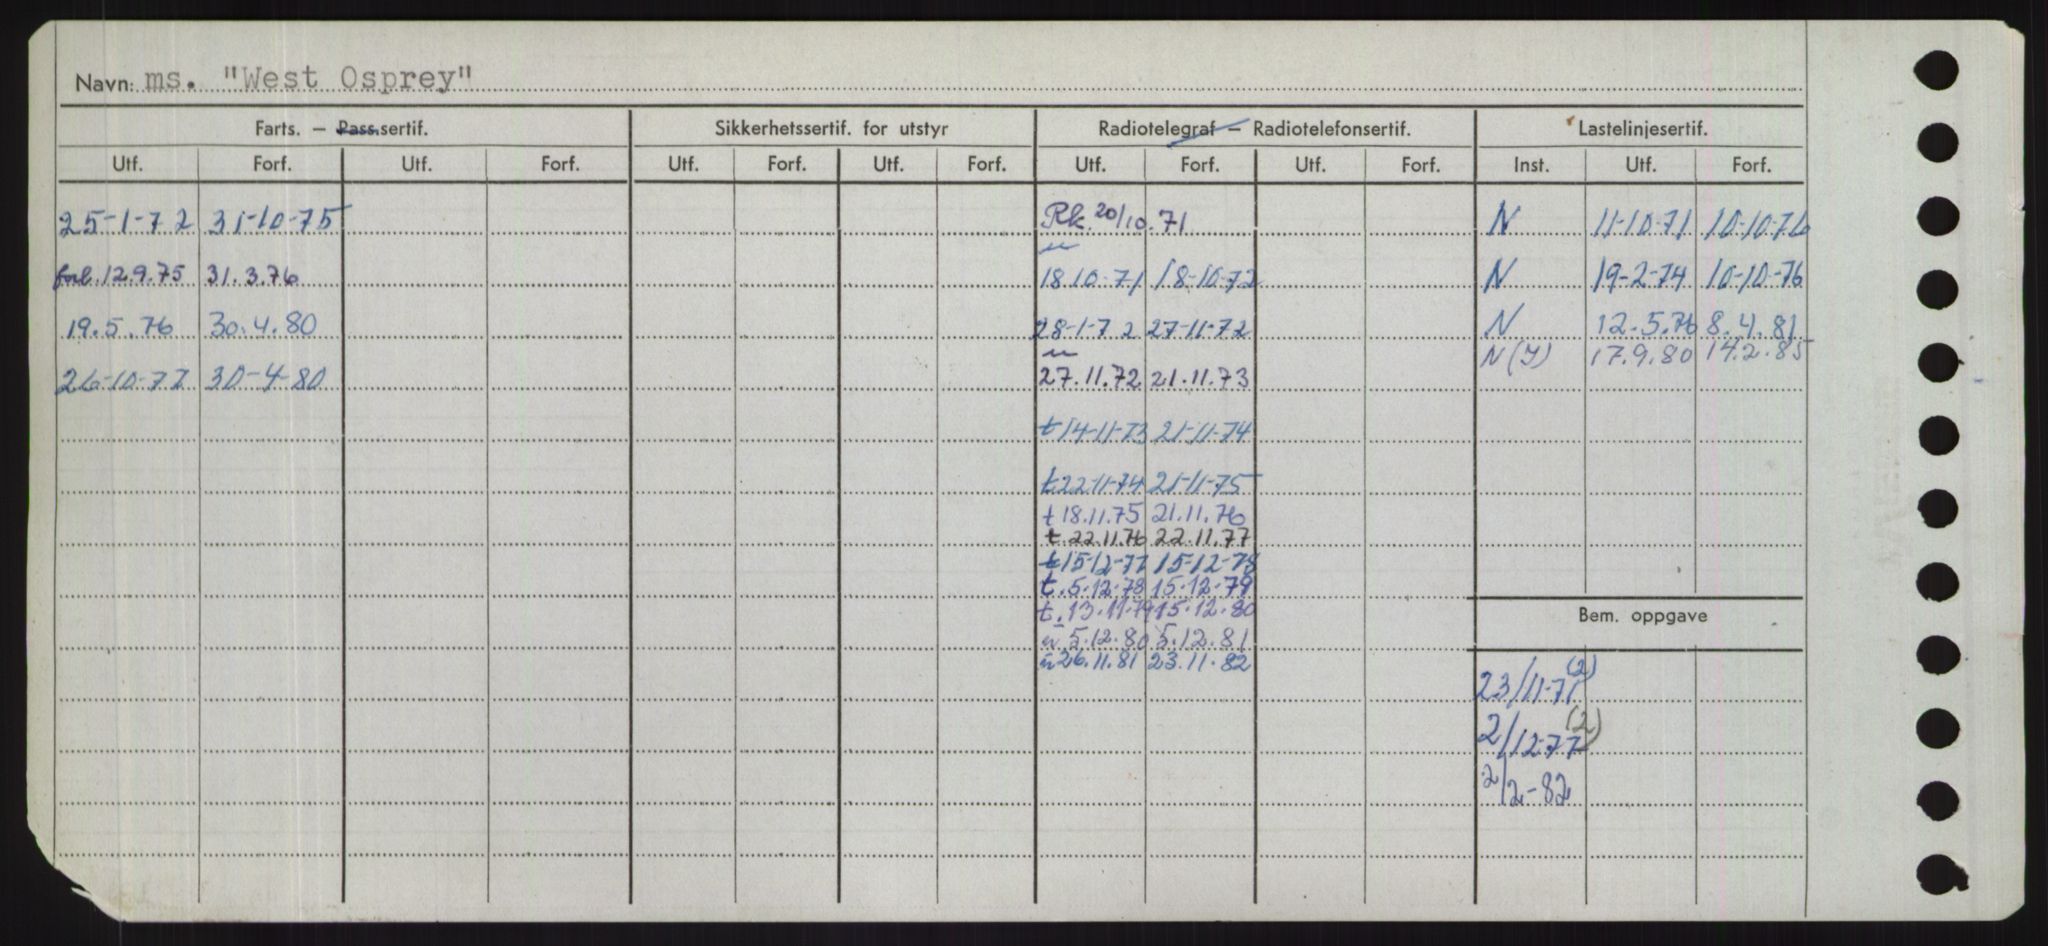 Navn: ms. "West Osprey"
Farts. – Pass.sertif. Sikkerhetssertif. for utstyr Radiotelegraf – Radiotelefonsertif. Lastelinjesertif.
Utf. Forf. Utf. Forf. Utf. Forf. Utf. Forf. Utf. Forf. Utf. Forf. Inst. Utf. Forf.
25-1-72 31-10-75 Rk. 20/10.71 N 11-10-71 10-10-76
forl. 12.9.75 31.3.76 18 10-71 18-10-72 N 19-2-74 10-10-76
19.5.76 30.4.80 28-1-72 27-11-72 N 12.5.76 8.4.81
N (Y) 17.9.80 14.2.85
26-10-77 30-4-80 27.11.72 21.11.73
t 14-11-73 21-11-74
t 22-11-74 21-11-75
t 18.11.75 21.11.76
t. 22.11.76 22.11.77
t 15-12-77 15-12-78
t. 5.12.78 15.12.79
t. 13.11.79 15.12.80
Bem. oppgave
u 5.12.80 5.12.81
u 26.11.81 23.11.82
23/11-71 (2)
2/12-77 (2)
2/2-82